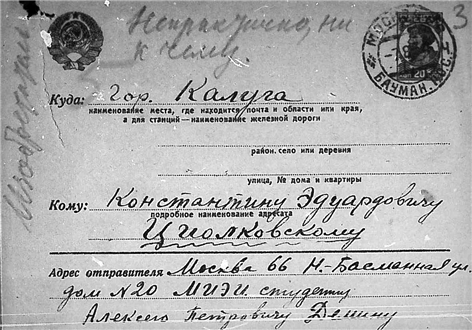 Непрактично, ни
к чему.
3
МОСКВА
20
БАУМАН. П.О.
Изобретения
Куда: гор. Калуга
наименование места, где находится почта и области или края,
а для станций—наименование железной дороги
район, село или деревня
улица, № дома и квартиры
Кому: Константину Эдуардовичу
подробное наименование адресата
Циолковскому
Адрес отправителя Москва 66 Н-Басманная ул.
дом №20 МИЭИ студенту
Алексею Петровичу Демину